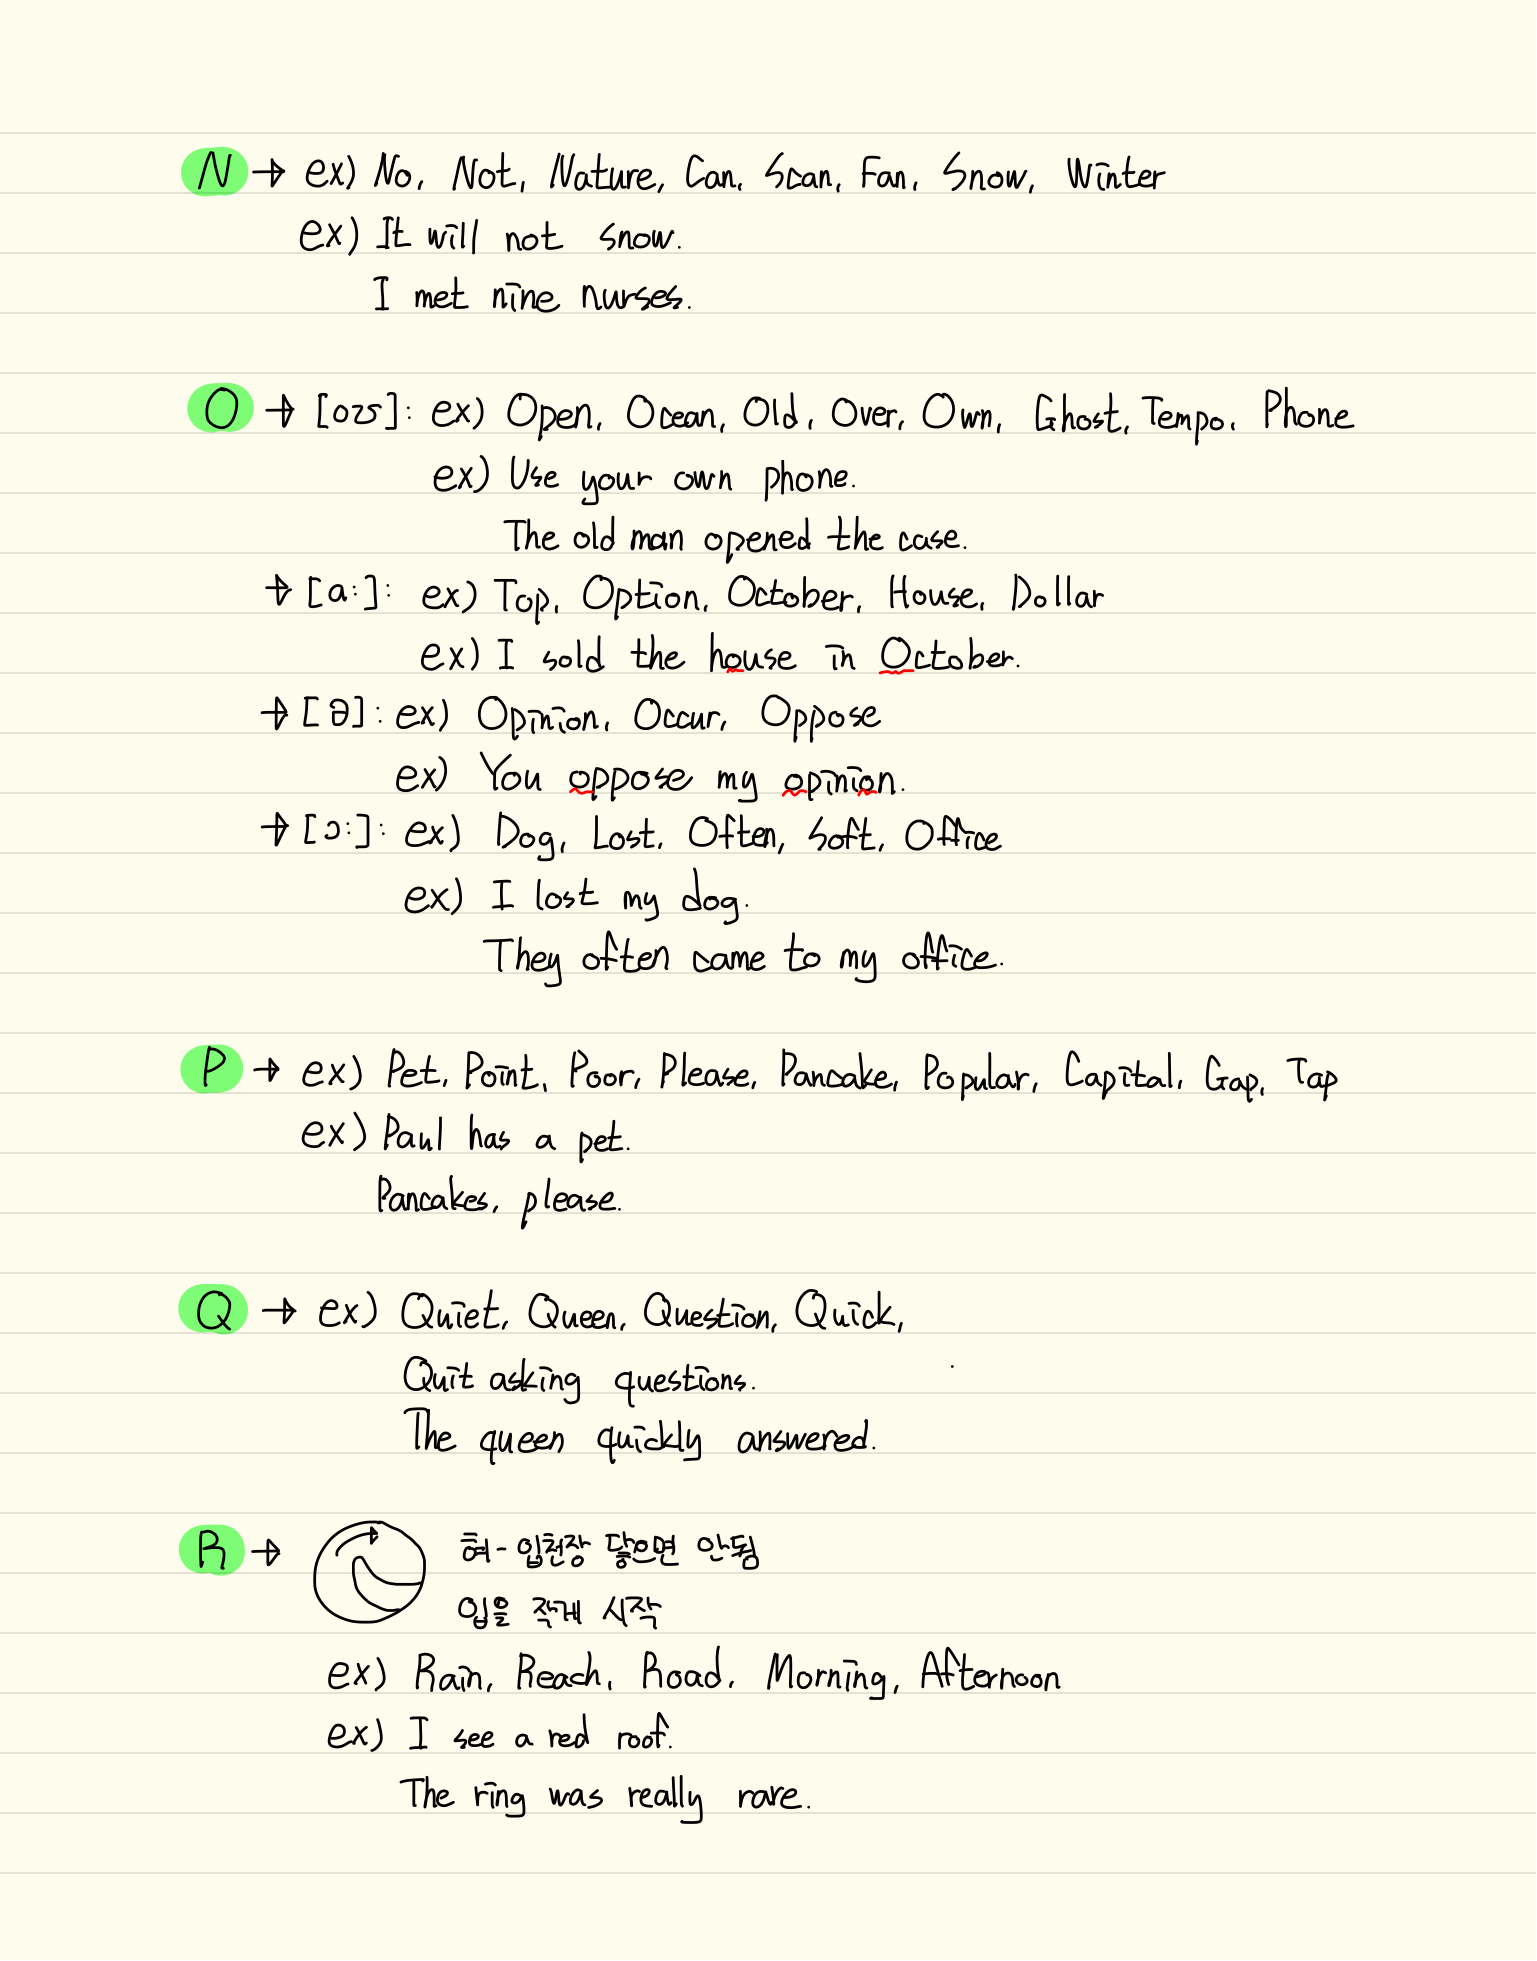 N → ex) No, Not, Nature, Can, Scan, Fan, Snow, Winter
ex) It will not snow.
I met nine nurses.
O → [oʊ]: ex) Open, Ocean, Old, Over, Own, Ghost, Tempo, Phone
ex) Use your own phone.
The old man opened the case.
→ [a:]: ex) Top, Option, October, House, Dollar
ex) I sold the house in October.
→ [ə]: ex) Opinion, Occur, Oppose
ex) You oppose my opinion.
→ [ɔ:]: ex) Dog, Lost, Often, Soft, Office
ex) I lost my dog.
They often came to my office.
P → ex) Pet, Point, Poor, Please, Pancake, Popular, Capital, Gap, Tap
ex) Paul has a pet.
Pancakes, please.
Q → ex) Quiet, Queen, Question, Quick,
Quit asking questions.
The queen quickly answered.
R → 혀-입천장 닿으면 안됨
입을 작게 시작
ex) Rain, Reach, Road, Morning, Afternoon
ex) I see a red roof.
The ring was really rare.